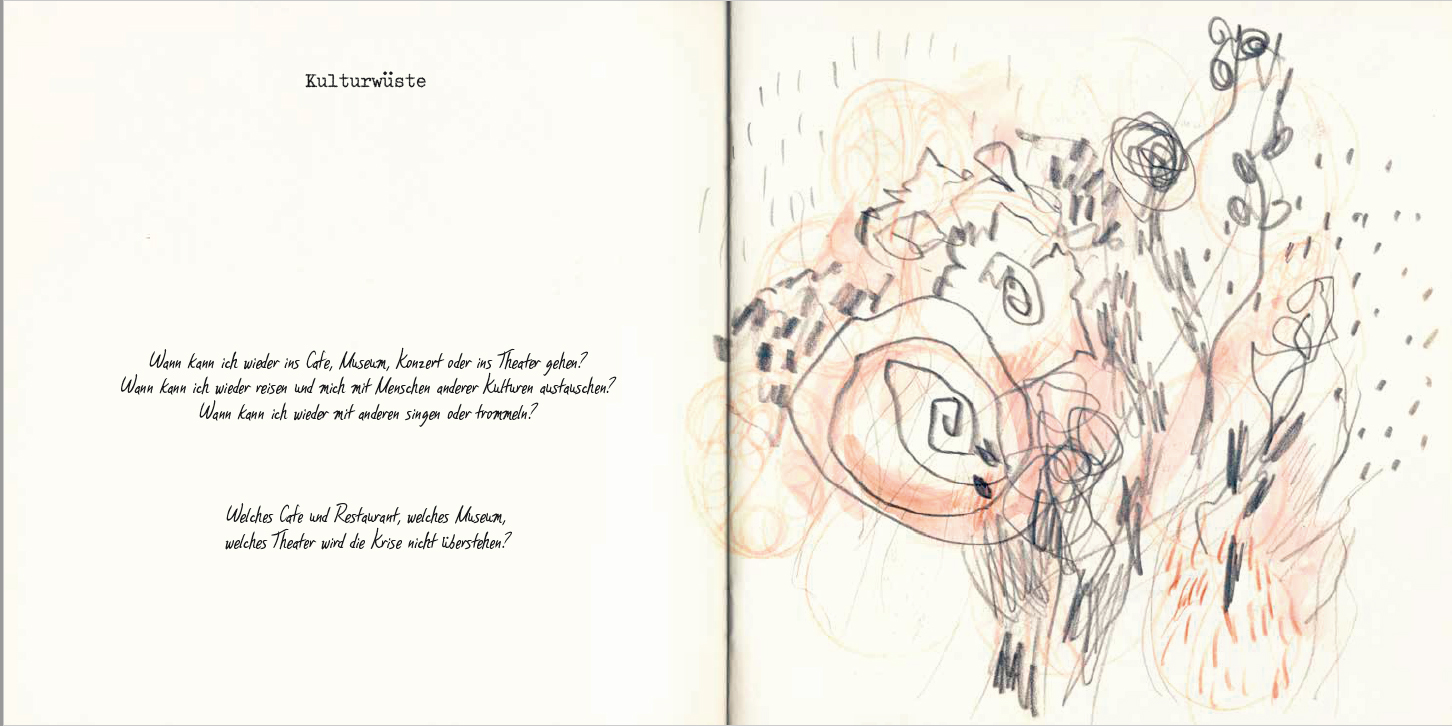 Kulturwüste
Wann kann ich wieder ins Cafe, Museum, Konzert oder ins Theater gehen?
Wann kann ich wieder reisen und mich mit Menschen anderer Kulturen austauschen?
Wann kann ich wieder mit anderen singen oder trommeln?
Welches Cafe und Restaurant, welches Museum,
welches Theater wird die Krise nicht überstehen?